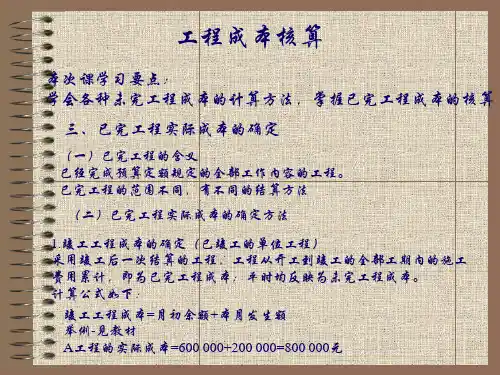 工程成本核算
本次课学习要点：
学会各种未完工程成本的计算方法，掌握已完工程成本的核算
三、已完工程实际成本的确定
（一）已完工程的含义
已经完成预算定额规定的全部工作内容的工程。
已完工程的范围不同，有不同的结算方法
（二）已完工程实际成本的确定方法
1.竣工工程成本的确定（已竣工的单位工程）
采用竣工后一次结算的工程，工程从开工到竣工的全部工期内的施工
费用累计，即为已完工程成本；平时均反映为未完工程成本。
计算公式如下：
竣工工程成本=月初余额+本月发生额
举例-见教材
A工程的实际成本=600 000+200 000=800 000元